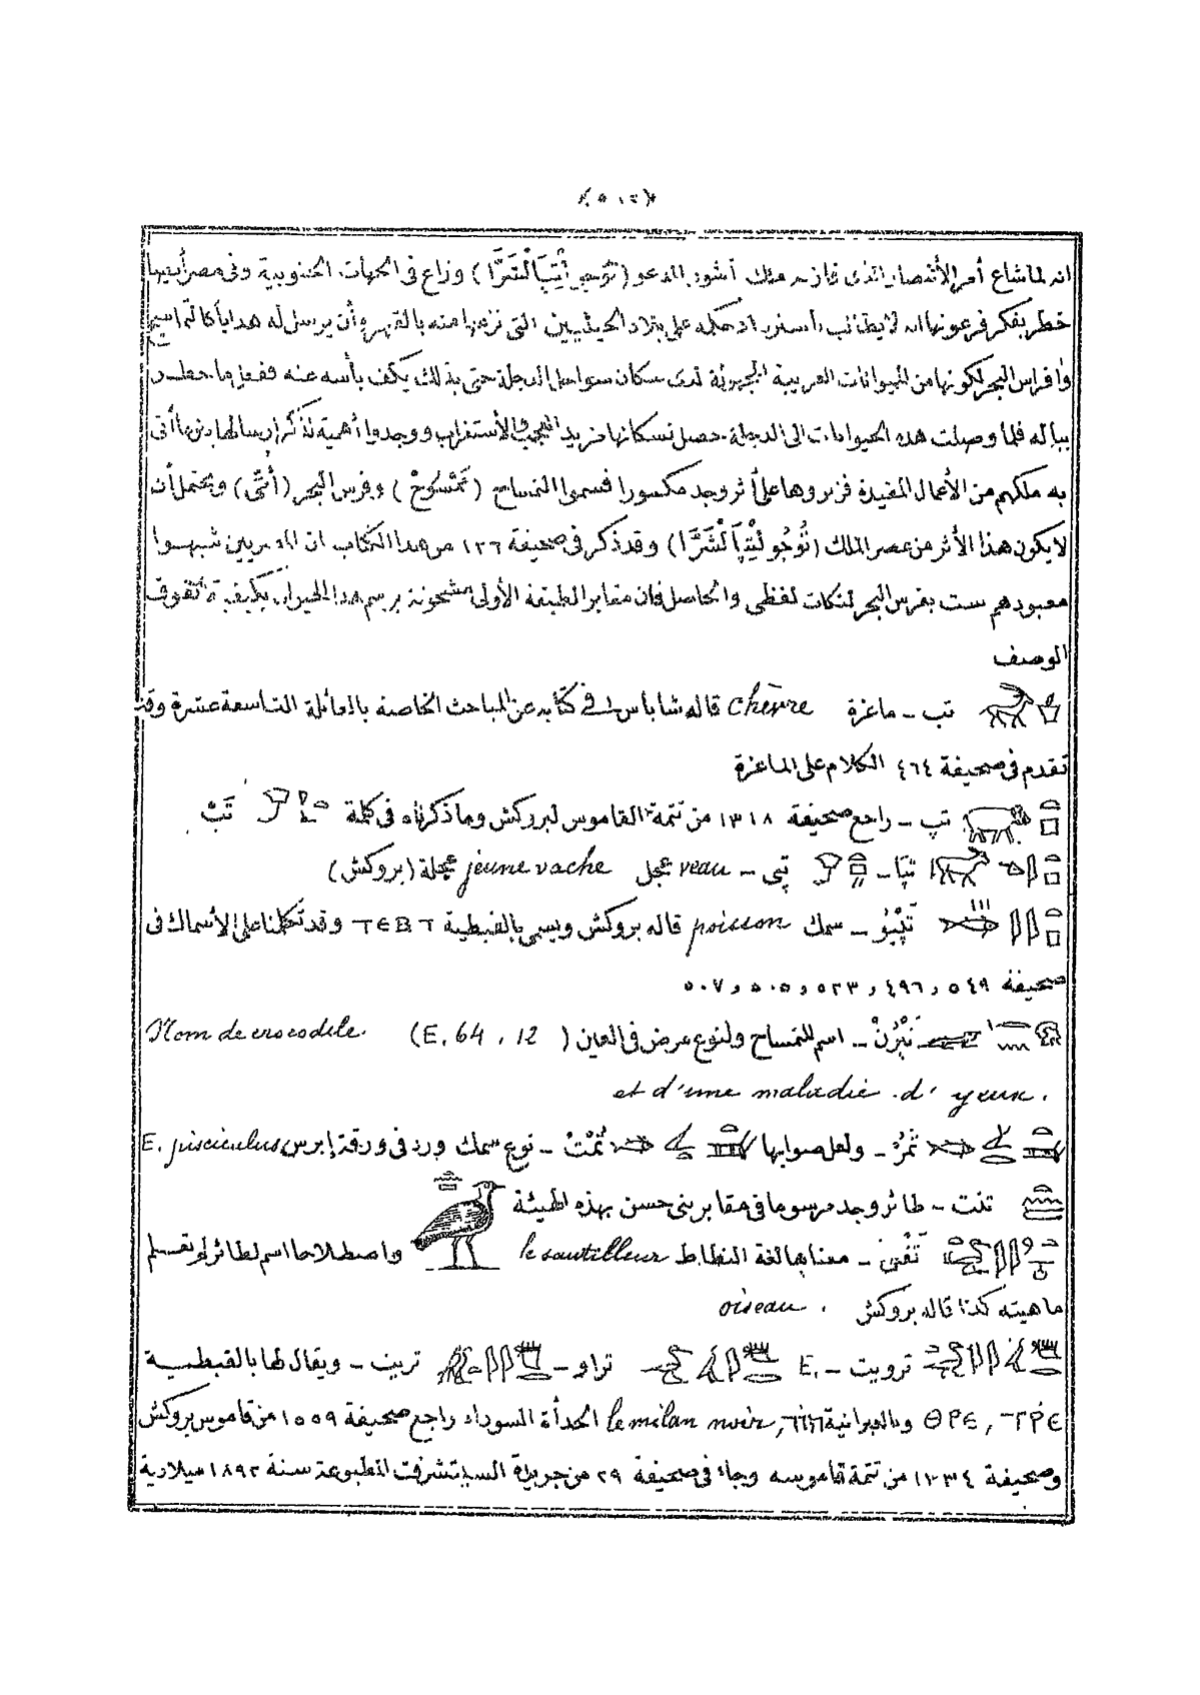 انه لما شاع أمر الأنتصار الذى فاز به ملك آشور المدعو ( ) وزاع فى الجهات الجنوبية وفى مصر أيضا
خطر بفكر فرعونها انه على بلاد الحيثيين التى نزعها منه بالقهر أن يرسل له هدايا كالتماسيح
وأفراس البحر لكونها من الحيوانات الغريبة المجهولة لدى سكان سواحل الدجلة حتى بذلك يكف بأسه عنه ففعل ما خطر
بباله فلما وصلت هذه الحيوانات الى الدجلة حصل لسكانها مزيد العجب والأستغراب ووجدوا أهمية لذكر ارسالها ما أتى
به ملكهم من الأعمال المفيدة فزبروها على أثر وجد مكسورا فسموا التمساح (تَمْسُوخْ) وفرس البحر (أُمّى) ويحتمل أن
لا يكون هذا الأثر من عصر الملك ( ) وقد ذكر فى صحيفة ١٢٦ من هذا الكتاب ان المصريين شبهوا
معبودهم ست بفرس البحر لنكات لفظى والحاصل فان مقابر الطبقة الأولى مشحونة برسم هذا الحيوان بكيفية تفوق
الوصف
تب ـ ماعزة chèvre قاله شاباس فى كتابه عن المباحث الخاصه بالعائلة التاسعة عشرة وقد
تقدم فى صحيفة ٤٦٤ الكلام على الماعزة
تپ ـ راجع صحيفة ١٣١٨ من تتمة القاموس لبروكش وما ذكرناه فى كلمة تَبْ
تپَا ـ تپى ـ veau عجل jeune vache عجلة (بروكش)
تَپْيُو ـ سمك poisson قاله بروكش ويسمى بالقبطية ⲦⲈⲂⲦ وقد تكلمنا على الأسماك فى
صحيفة ٥٤٩ و ٤٩٦ و ٥٢٣ و ٥٠٥ و ٥٠٧
ـ اسم للتمساح ولنوع مرض فى العين (E. 64, 12) Nom de crocodile
et d'une maladie d' yeux.
تَمُرْ ـ ولعل صوابها تُمْتْ ـ نوع سمك ورد فى ورقة إبرس E. pisciculus
تنت ـ طائر وجد مرسوما فى مقابر بنى حسن بهذه الهيئة
ـ معناها لغة النطاط le sautilleur واصطلاحا اسم لطائر لم تعلم
ماهيته كذا قاله بروكش oiseau.
ترويت ـ E. تراو ـ تريت ـ ويقال لها بالقبطيـة
ⲐⲢⲈ, ⲦⲢⲈ وبالعبرانية le milan noir, الحدأة السوداء راجع صحيفة ١٥٥٩ من قاموس بروكش
وصحيفة ١٣٣٤ من تتمة قاموسه وجاء فى صحيفة ٢٩ من جريدة السيتشرفت المطبوعة سنة ١٨٩٢ ميلادية